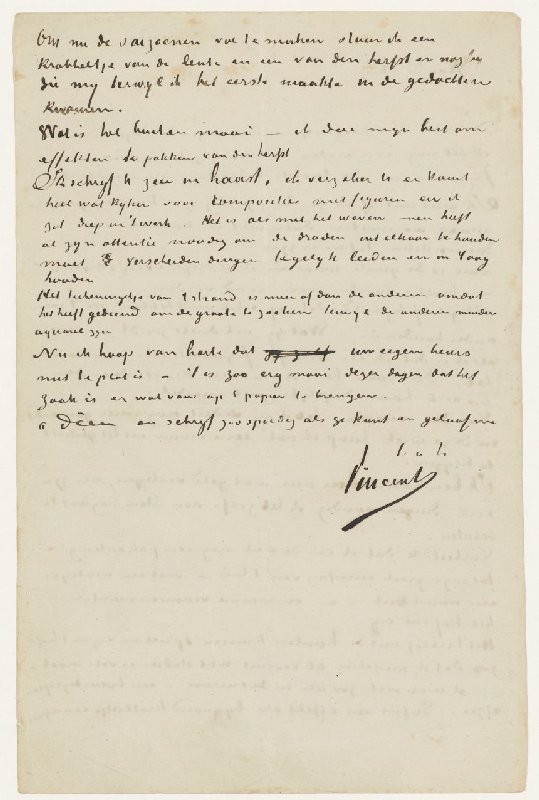 Om nu de saizoenen vol te maken stuur ik een
krabbeltje van de lente en een van den herfst er nog by
die my terwyl ik het eerste maakte in de gedachten
kwamen.
Wat is het buiten mooi – ik doe myn best om
effekten te pakken van den herfst
Ik schryf U zeer in haast, ik verzeker U er komt
heel wat kyken voor composities met figuren en ik
zit diep in 't werk. Het is als met het weven men heeft
al zyn attentie noodig om de draden uit elkaar te houden
moet verscheiden dingen tegelyk leiden en in 't oog
houden
Het teekeningetje van 't strand is meer af dan de anderen omdat
het heeft gediend om de groote te zoeken terwyl de anderen minder
aquarel zyn
Nu ik hoop van harte dat uw eigen keus
niet te plat is – 't is zoo erg mooi dezer dagen dat het
zaak is er wat van op 't papier te brengen.
à Dieu en schryf zoo spoedig als ge kunt en geloof me
t. à t.
Vincent